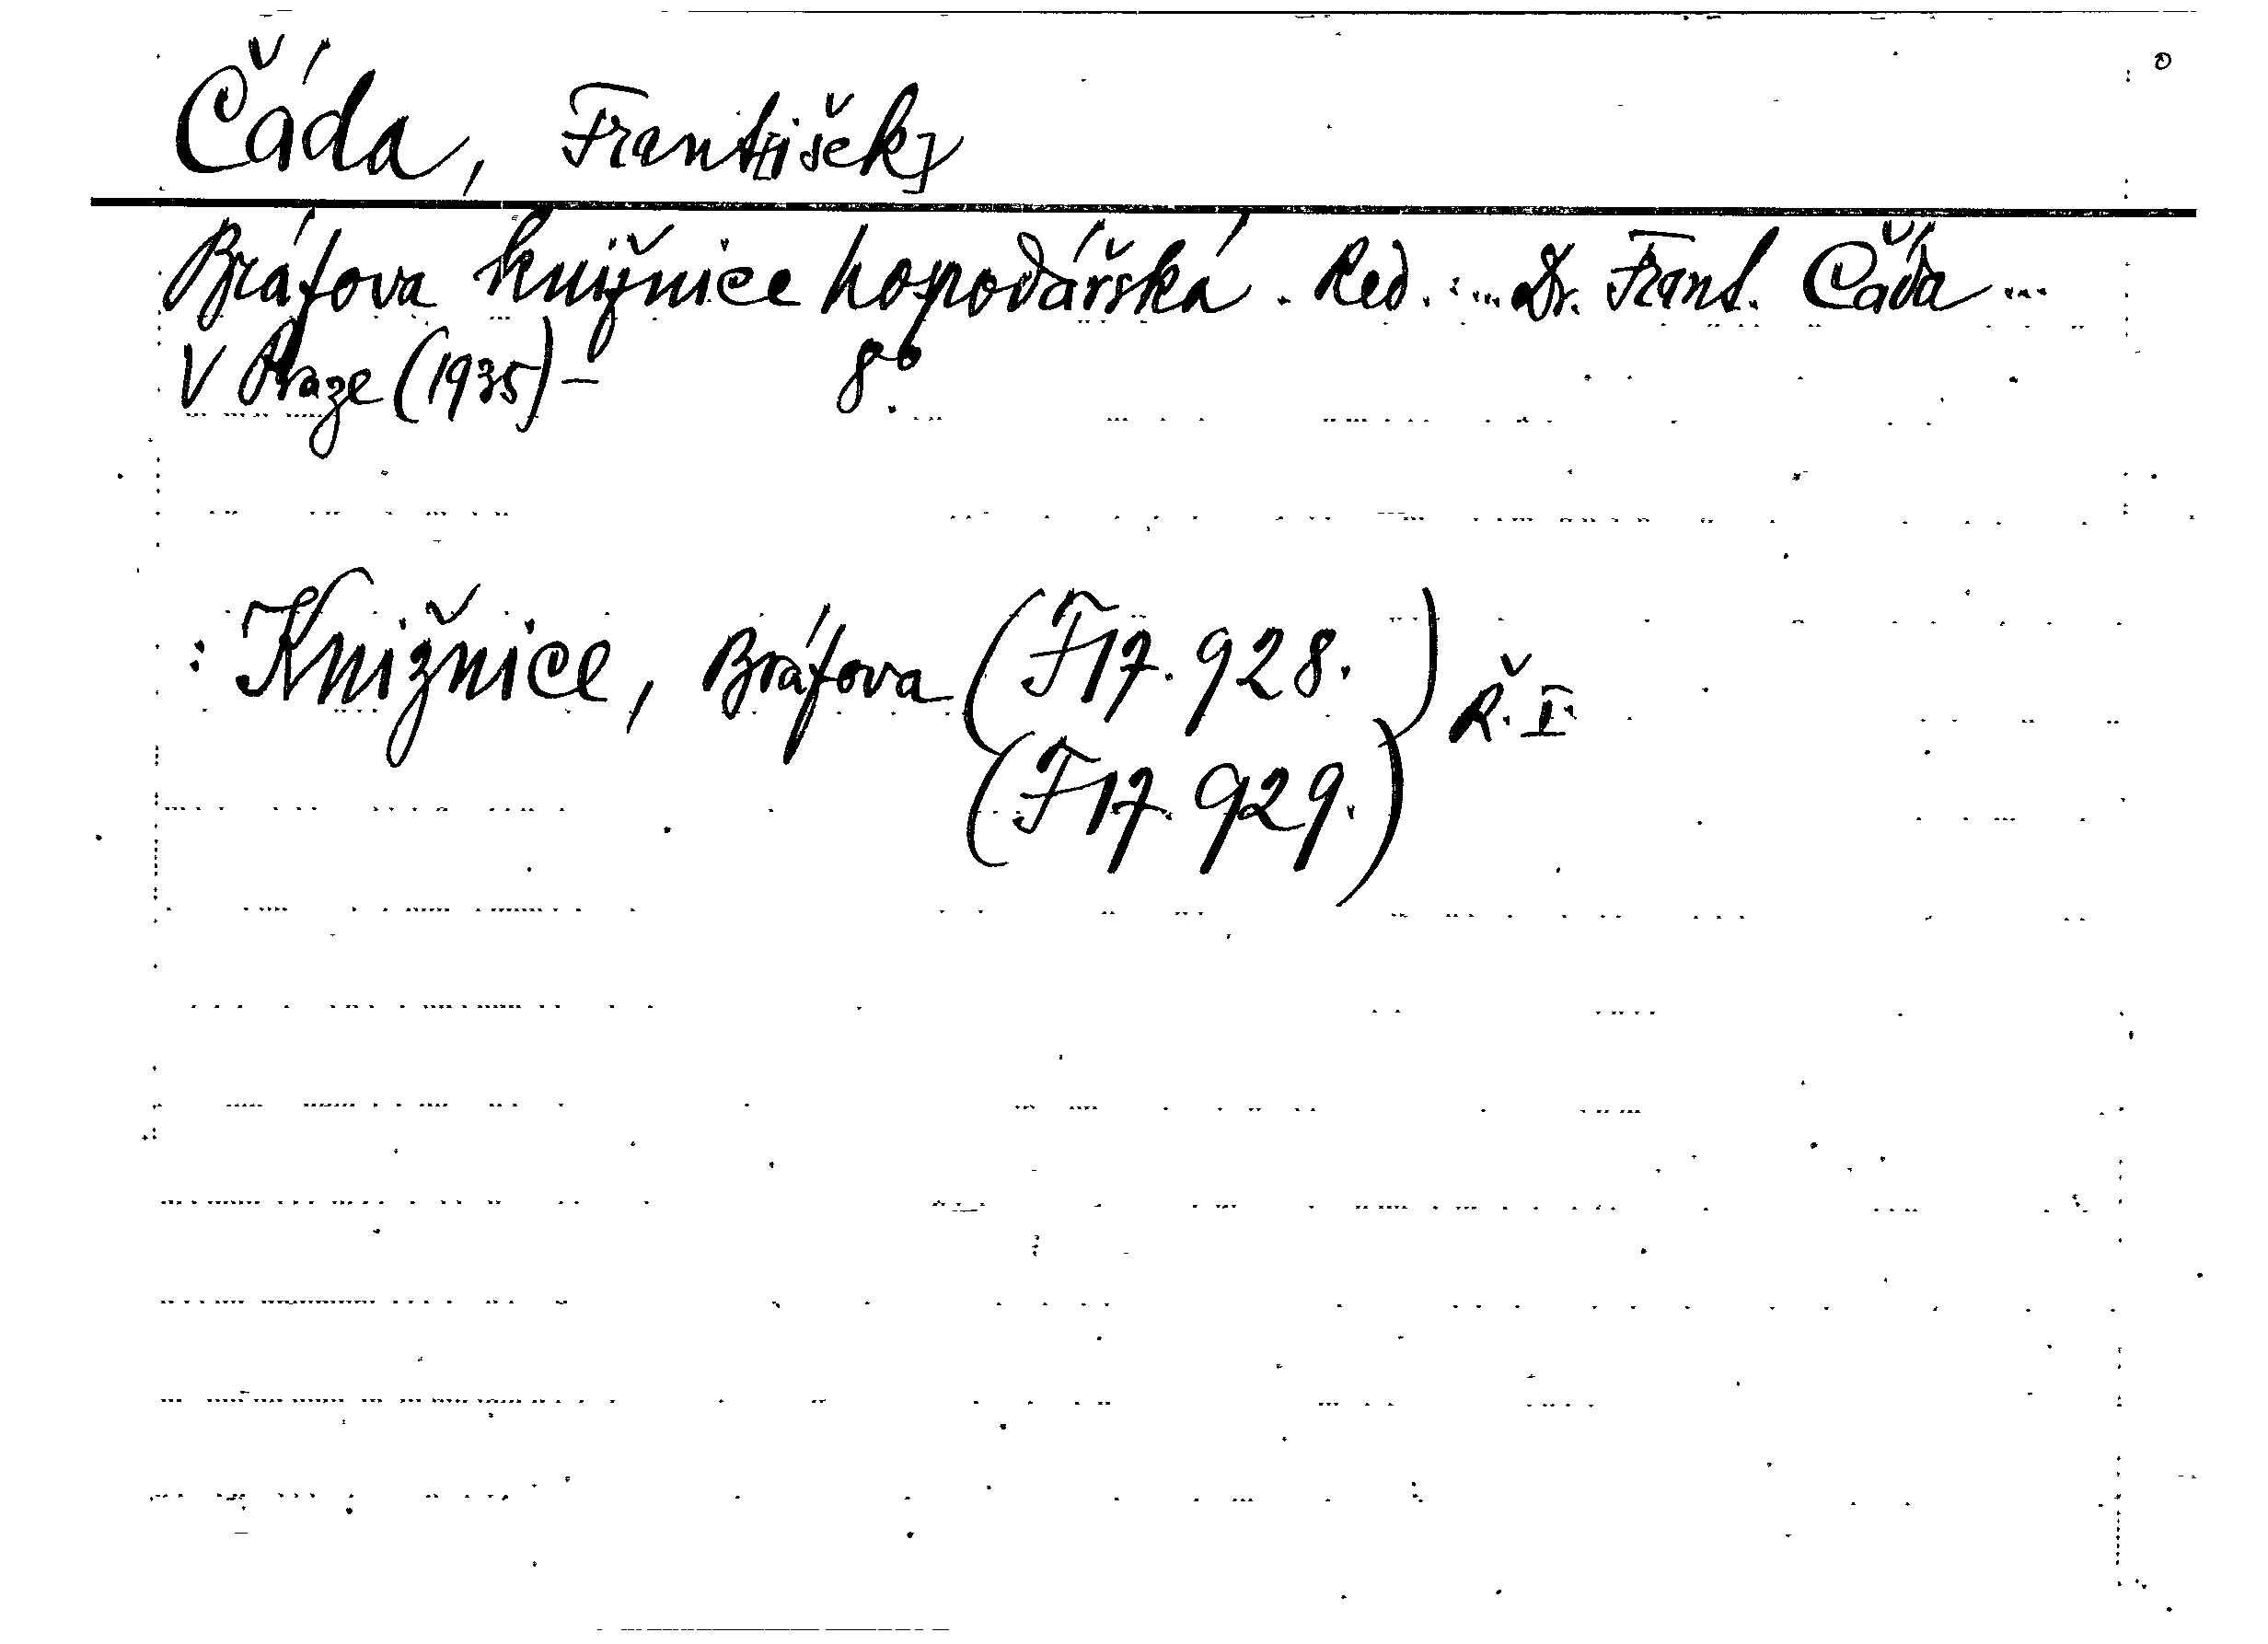 Čáda, Frant[išek]
Bráfova knižnice hospodářská. Red. :... Dr. Frant. Čáda ...
V Praze (1935) - 8°.
: Knižnice, Bráfova (F 17.928.) Ř. I.
(F 17.929.)